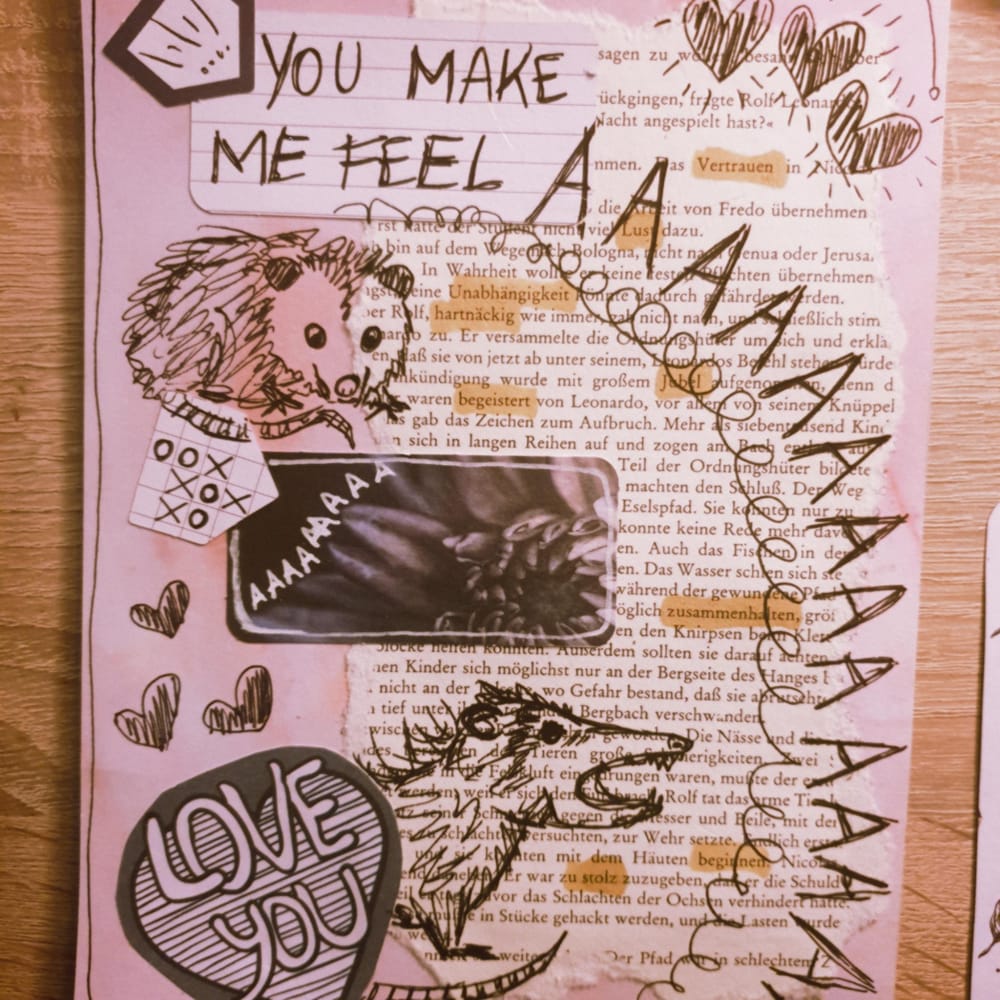 YOU MAKE
ME FEEL AAAAAAAAAAAAAAAA
sagen zu
rückgingen, fragte Rolf Leonardo
Nacht angespielt hast?«
Das Vertrauen in
die Arbeit von Fredo übernehmen
hatte der Student nicht viel Lust dazu.
bin auf dem Wege nach Bologna, nicht nach Genua oder Jerusa
In Wahrheit wollte er keine festen Pflichten übernehmen
seine Unabhängigkeit könnte dadurch gefährdet werden.
Rolf, hartnäckig wie immer, nicht nach, und schließlich stim
zu. Er versammelte die Ordnungshüter um sich und erklä
daß sie von jetzt ab unter seinem, Leonardos Befehl stehen würde
nkündigung wurde mit großem Jubel aufgenommen, denn d
waren begeistert von Leonardo, vor allem von seinem Knüppel
gab das Zeichen zum Aufbruch. Mehr als siebentausend Kind
sich in langen Reihen auf und zogen am Bach
OOX
XOX
XO
AAAAAAAAA
Teil der Ordnungshüter bildete
machten den Schluß. Der Weg
Eselspfad. Sie konnten nur zu
konnte keine Rede mehr
en. Auch das Fischen in de
en. Das Wasser schien sich
während der gewundene
öglich zusammenhalten, größ
en den Knirpsen beim Klett
helfen konnten. Außerdem sollten sie darauf achten
nen Kinder sich möglichst nur an der Bergseite des Hanges
nicht an der wo Gefahr bestand, daß sie abrutscht
tief unter Bergbach verschwanden
geworden. Die Nässe und
den Tieren große Schwierigkeiten. Zwei
in die Felskluft eingedrungen waren, mußte der
werden, weil er sich den Rolf tat das arme Ti
seiner gegen die Messer und Beile, mit der
zu schlachten versuchten, zur Wehr setzte. Endlich
und sie konnten mit dem Häuten beginnen.
daneben. Er war zu stolz zuzugeben, daß er die Schuld
davor das Schlachten der Ochsen verhindert hatte.
mußte in Stücke gehackt werden, und die Lasten wurde
Der Pfad war in schlechtem Z
LOVE
YOU